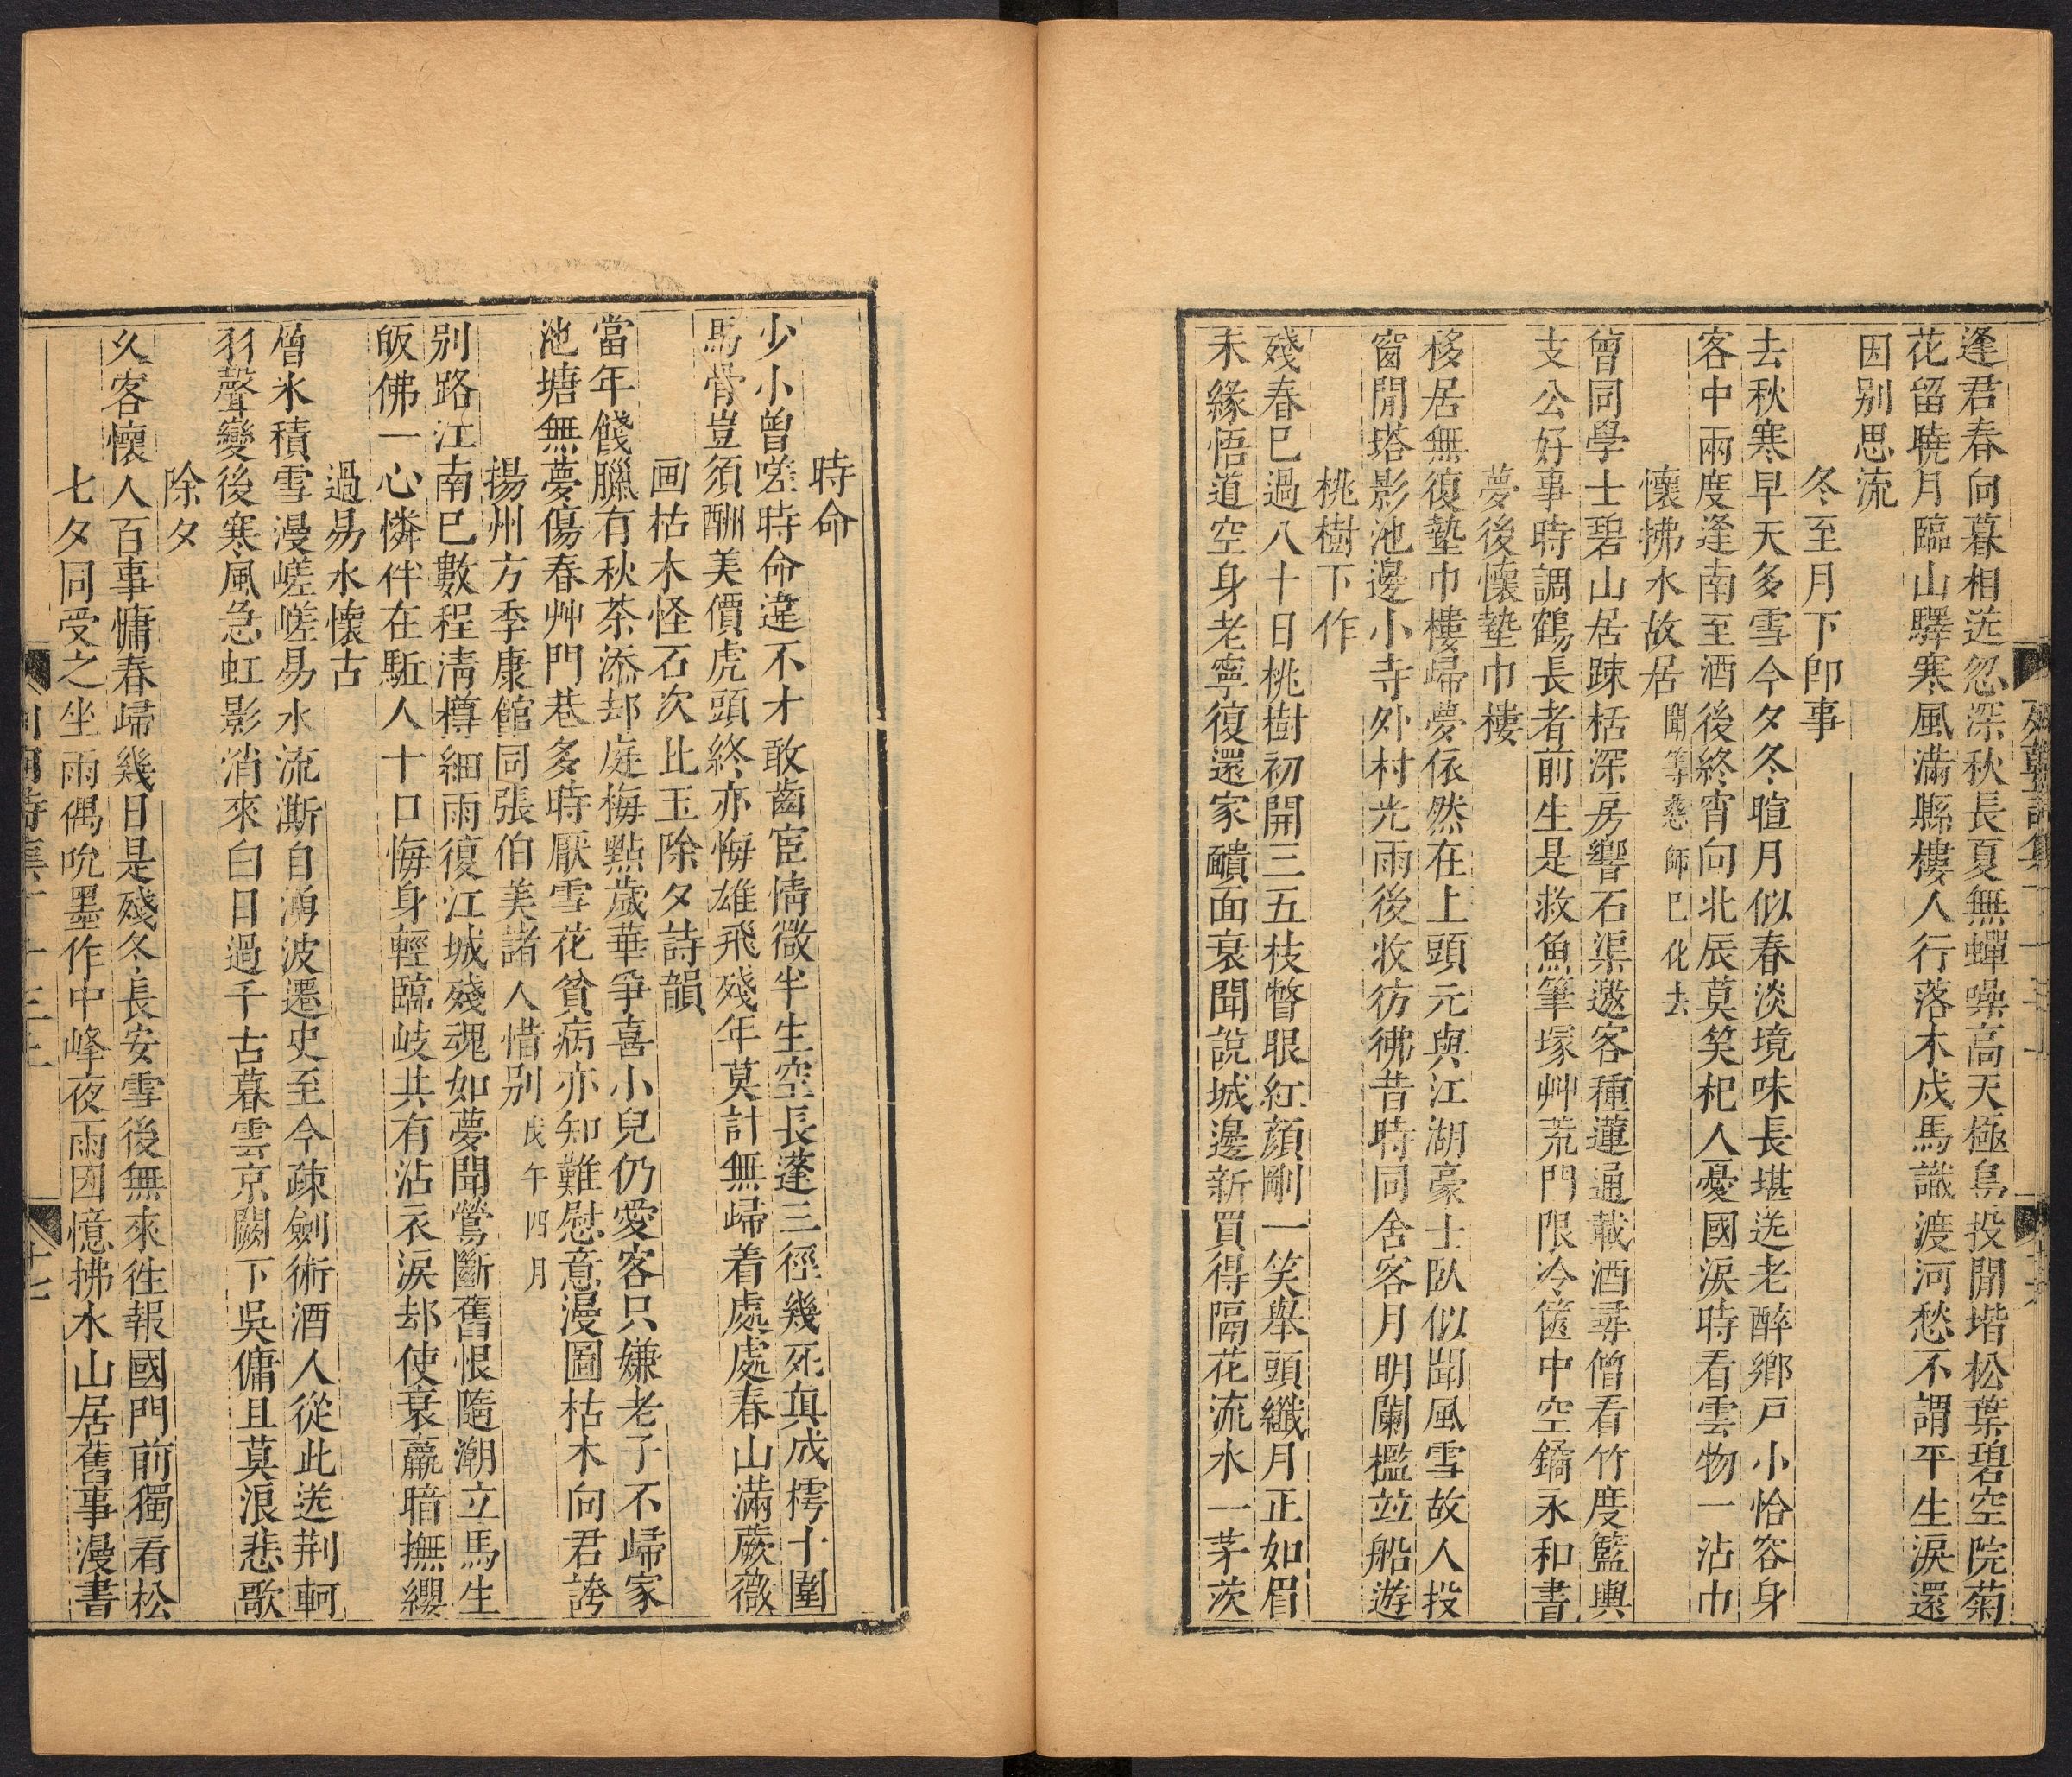 逢君春向暮相送忽深秋長夏無蟬噪高天極鳥投閒堦松葉碧空院菊
花留曉月臨山驛寒風滿縣樓人行落木戍馬識渡河愁不謂平生淚還
因別思流
冬至月下卽事
去秋寒早天多雪今夕冬暄月似春淡境味長堪送老醉鄉戶小恰容身
客中兩度逢南至酒後終宵向北辰莫笑杞人憂國淚時看雲物一沾巾
懷拂水故居聞等慈師已化去
曾同學士碧山居踈栝深房響石渠邀客種蓮通載酒尋僧看竹度籃輿
支公好事時調鶴長者前生是救魚筆塚艸荒門限冷篋中空鐍永和書
夢後懷墊巾樓
移居無復墊巾樓歸夢依然在上頭元與江湖豪士臥似聞風雪故人投
窗閒塔影池邊小寺外村光雨後收彷彿昔時同舍客月明闌檻竝船遊
桃樹下作
殘春已過八十日桃樹初開三五枝瞥眼紅顏剛一笑舉頭纖月正如眉
未緣悟道空身老寧復還家靧面衰聞說城邊新買得隔花流水一茅茨
時命
少小曾嗟時命違不才敢齒宦情微半生空長蓬三徑幾死眞成樗十圍
馬骨豈須酬美價虎頭終亦悔雄飛殘年莫計無歸着處處春山滿蕨薇
画枯木怪石次比玉除夕詩韻
當年餞臘有秋茶添却庭梅點歲華爭喜小兒仍愛客只嫌老子不歸家
池塘無夢傷春艸門巷多時厭雪花貧病亦知難慰意漫圖枯木向君誇
揚州方季康館同張伯美諸人惜别戊午四月
别路江南已數程淸樽細雨復江城殘魂如夢聞鶯斷舊恨隨潮立馬生
皈佛一心憐伴在駈人十口悔身輕臨岐共有沾衣淚却使衰羸暗撫纓
過易水懷古
層氷積雪漫嵯嵯易水流澌自湧波遷史至今疎劍術酒人從此送荆軻
羽聲變後寒風急虹影消來白日過千古暮雲京闕下吳傭且莫浪悲歌
除夕
久客懷人百事慵春歸幾日是殘冬長安雪後無來徃報國門前獨看松
七夕同受之坐雨偶吮墨作中峰夜雨因憶拂水山居舊事漫書